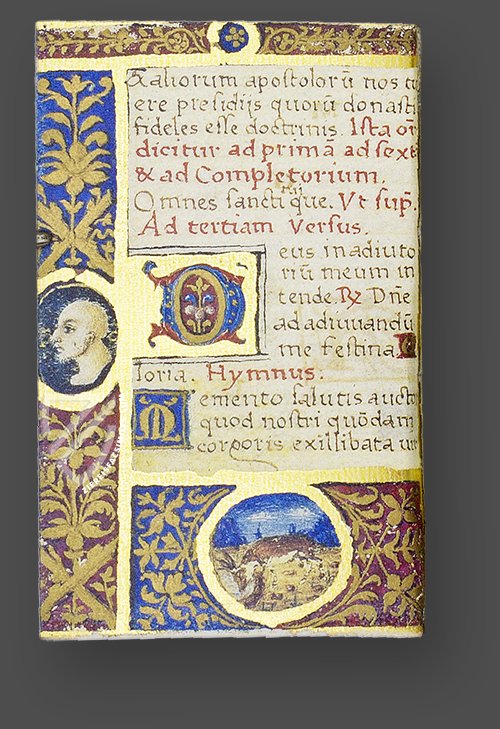 & aliorum apostolorū nos tu
ere presidijs quorū donasti
fideles esse doctrinis. Ista or
dicitur ad primā ad sext
& ad Completorium.
Omnes sancti que. Vt sup̄.
Ad tertiam Versus.
Deus in adiuto
riū meum in
tende. ℞ Dn̄e
ad adiuuandū
me festina. G
loria. Hymnus.
Memento salutis auct
quod nostri quōdam
corporis ex illibata uir